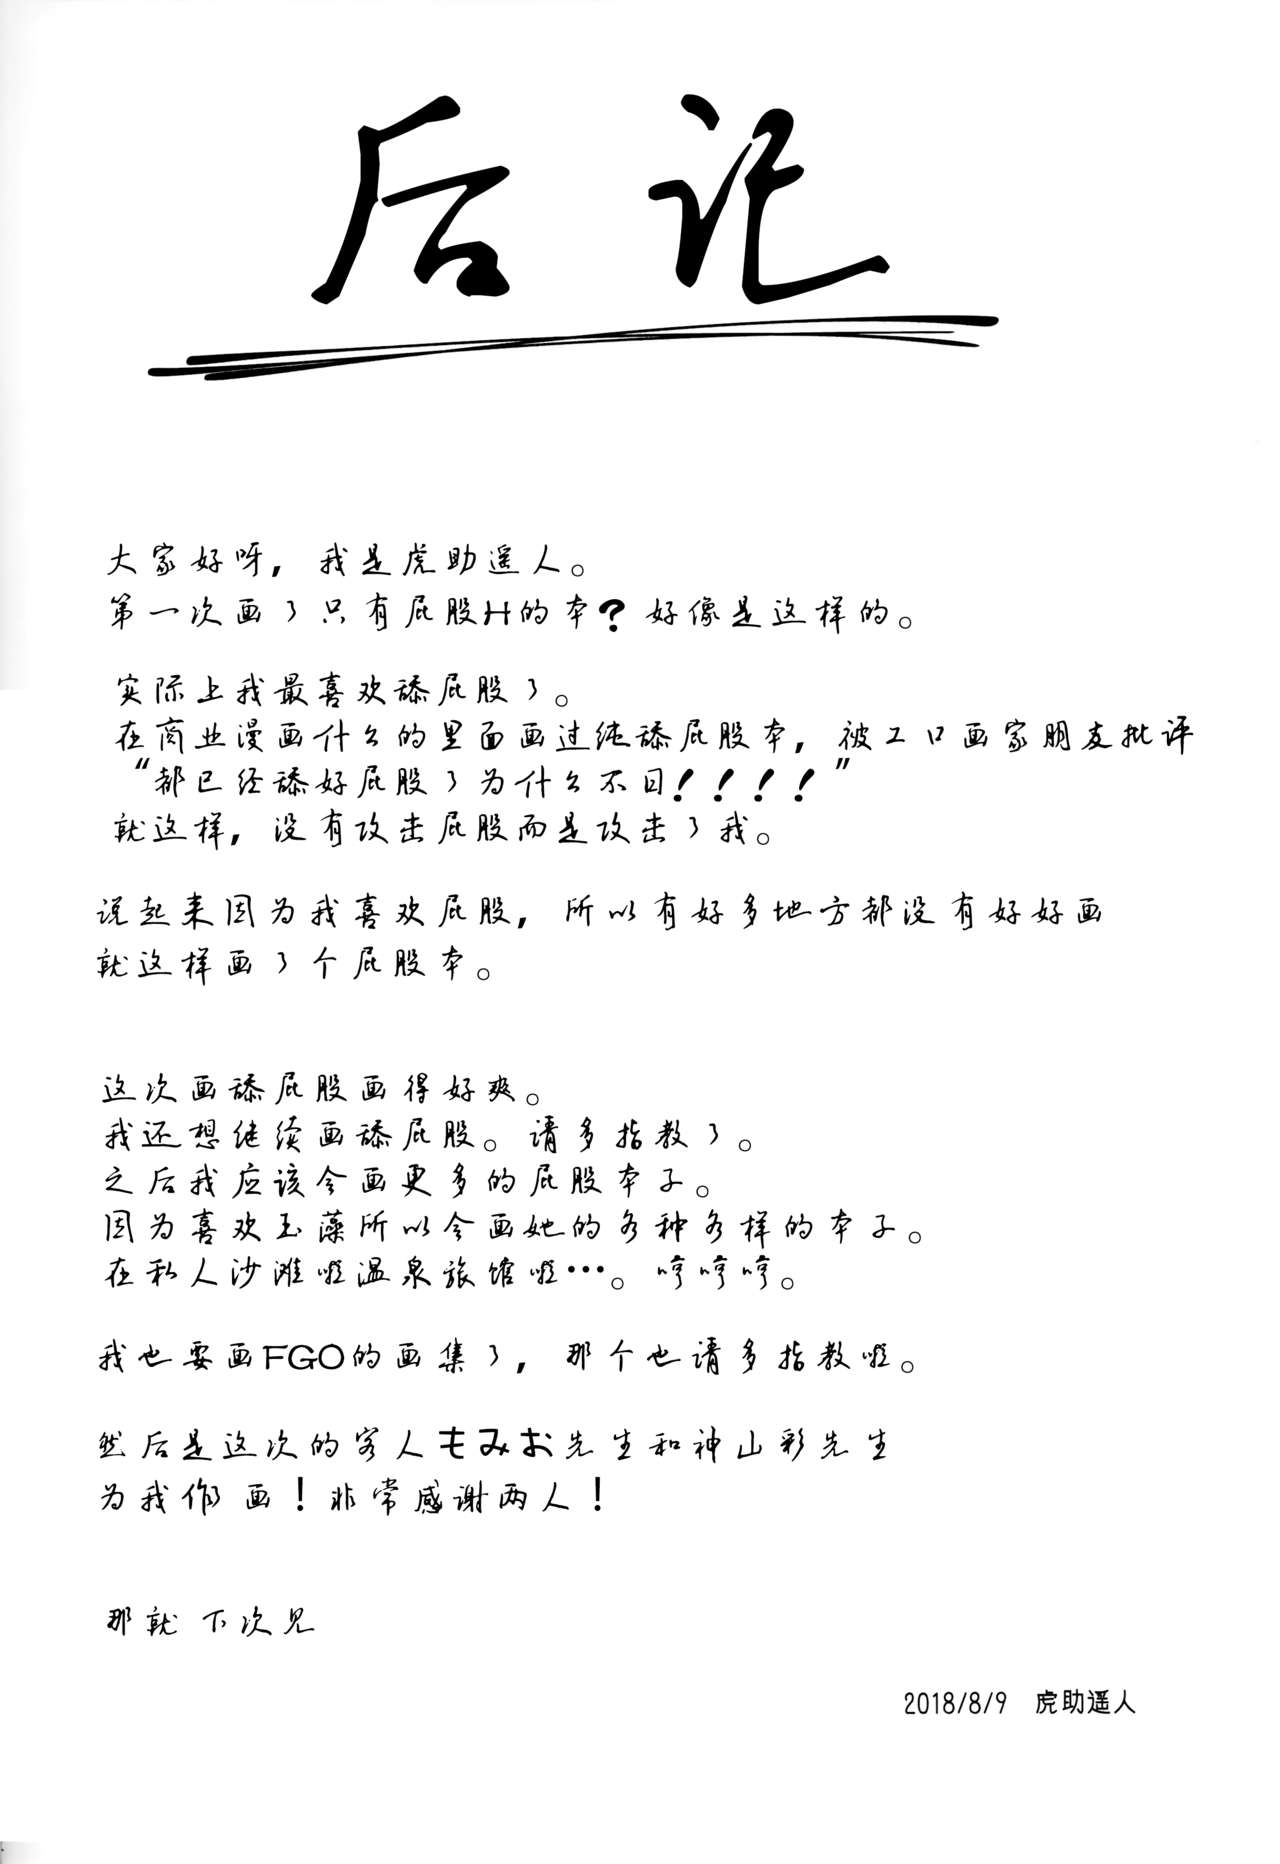 后记
大家好呀，我是虎助遥人。
第一次画了只有屁股H的本？好像是这样的。
实际上我最喜欢舔屁股了。
在商业漫画什么的里面画过纯舔屁股本，被工口画家朋友批评
“都已经舔好屁股了为什么不日！！！！”
就这样，没有攻击屁股而是攻击了我。
说起来因为我喜欢屁股，所以有好多地方都没有好好画
就这样画了个屁股本。
这次画舔屁股画得好爽。
我还想继续画舔屁股。请多指教了。
之后我应该会画更多的屁股本子。
因为喜欢玉藻所以会画她的各种各样的本子。
在私人沙滩啦温泉旅馆啦…。哼哼哼。
我也要画FGO的画集了，那个也请多指教啦。
然后是这次的客人もみお先生和神山彩先生
为我作画！非常感谢两人！
那就 下次见
2018/8/9 虎助遥人